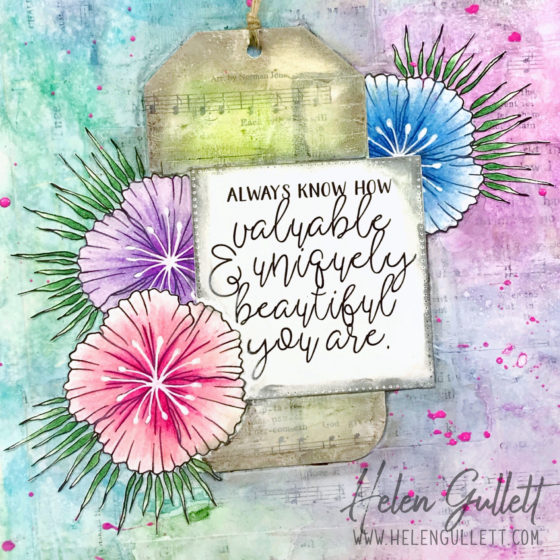 Arr. by Norman Jones
ALWAYS KNOW HOW
valuable
& uniquely
beautiful
you are.
Helen Gullett
WWW.HELENGULLETT.COM